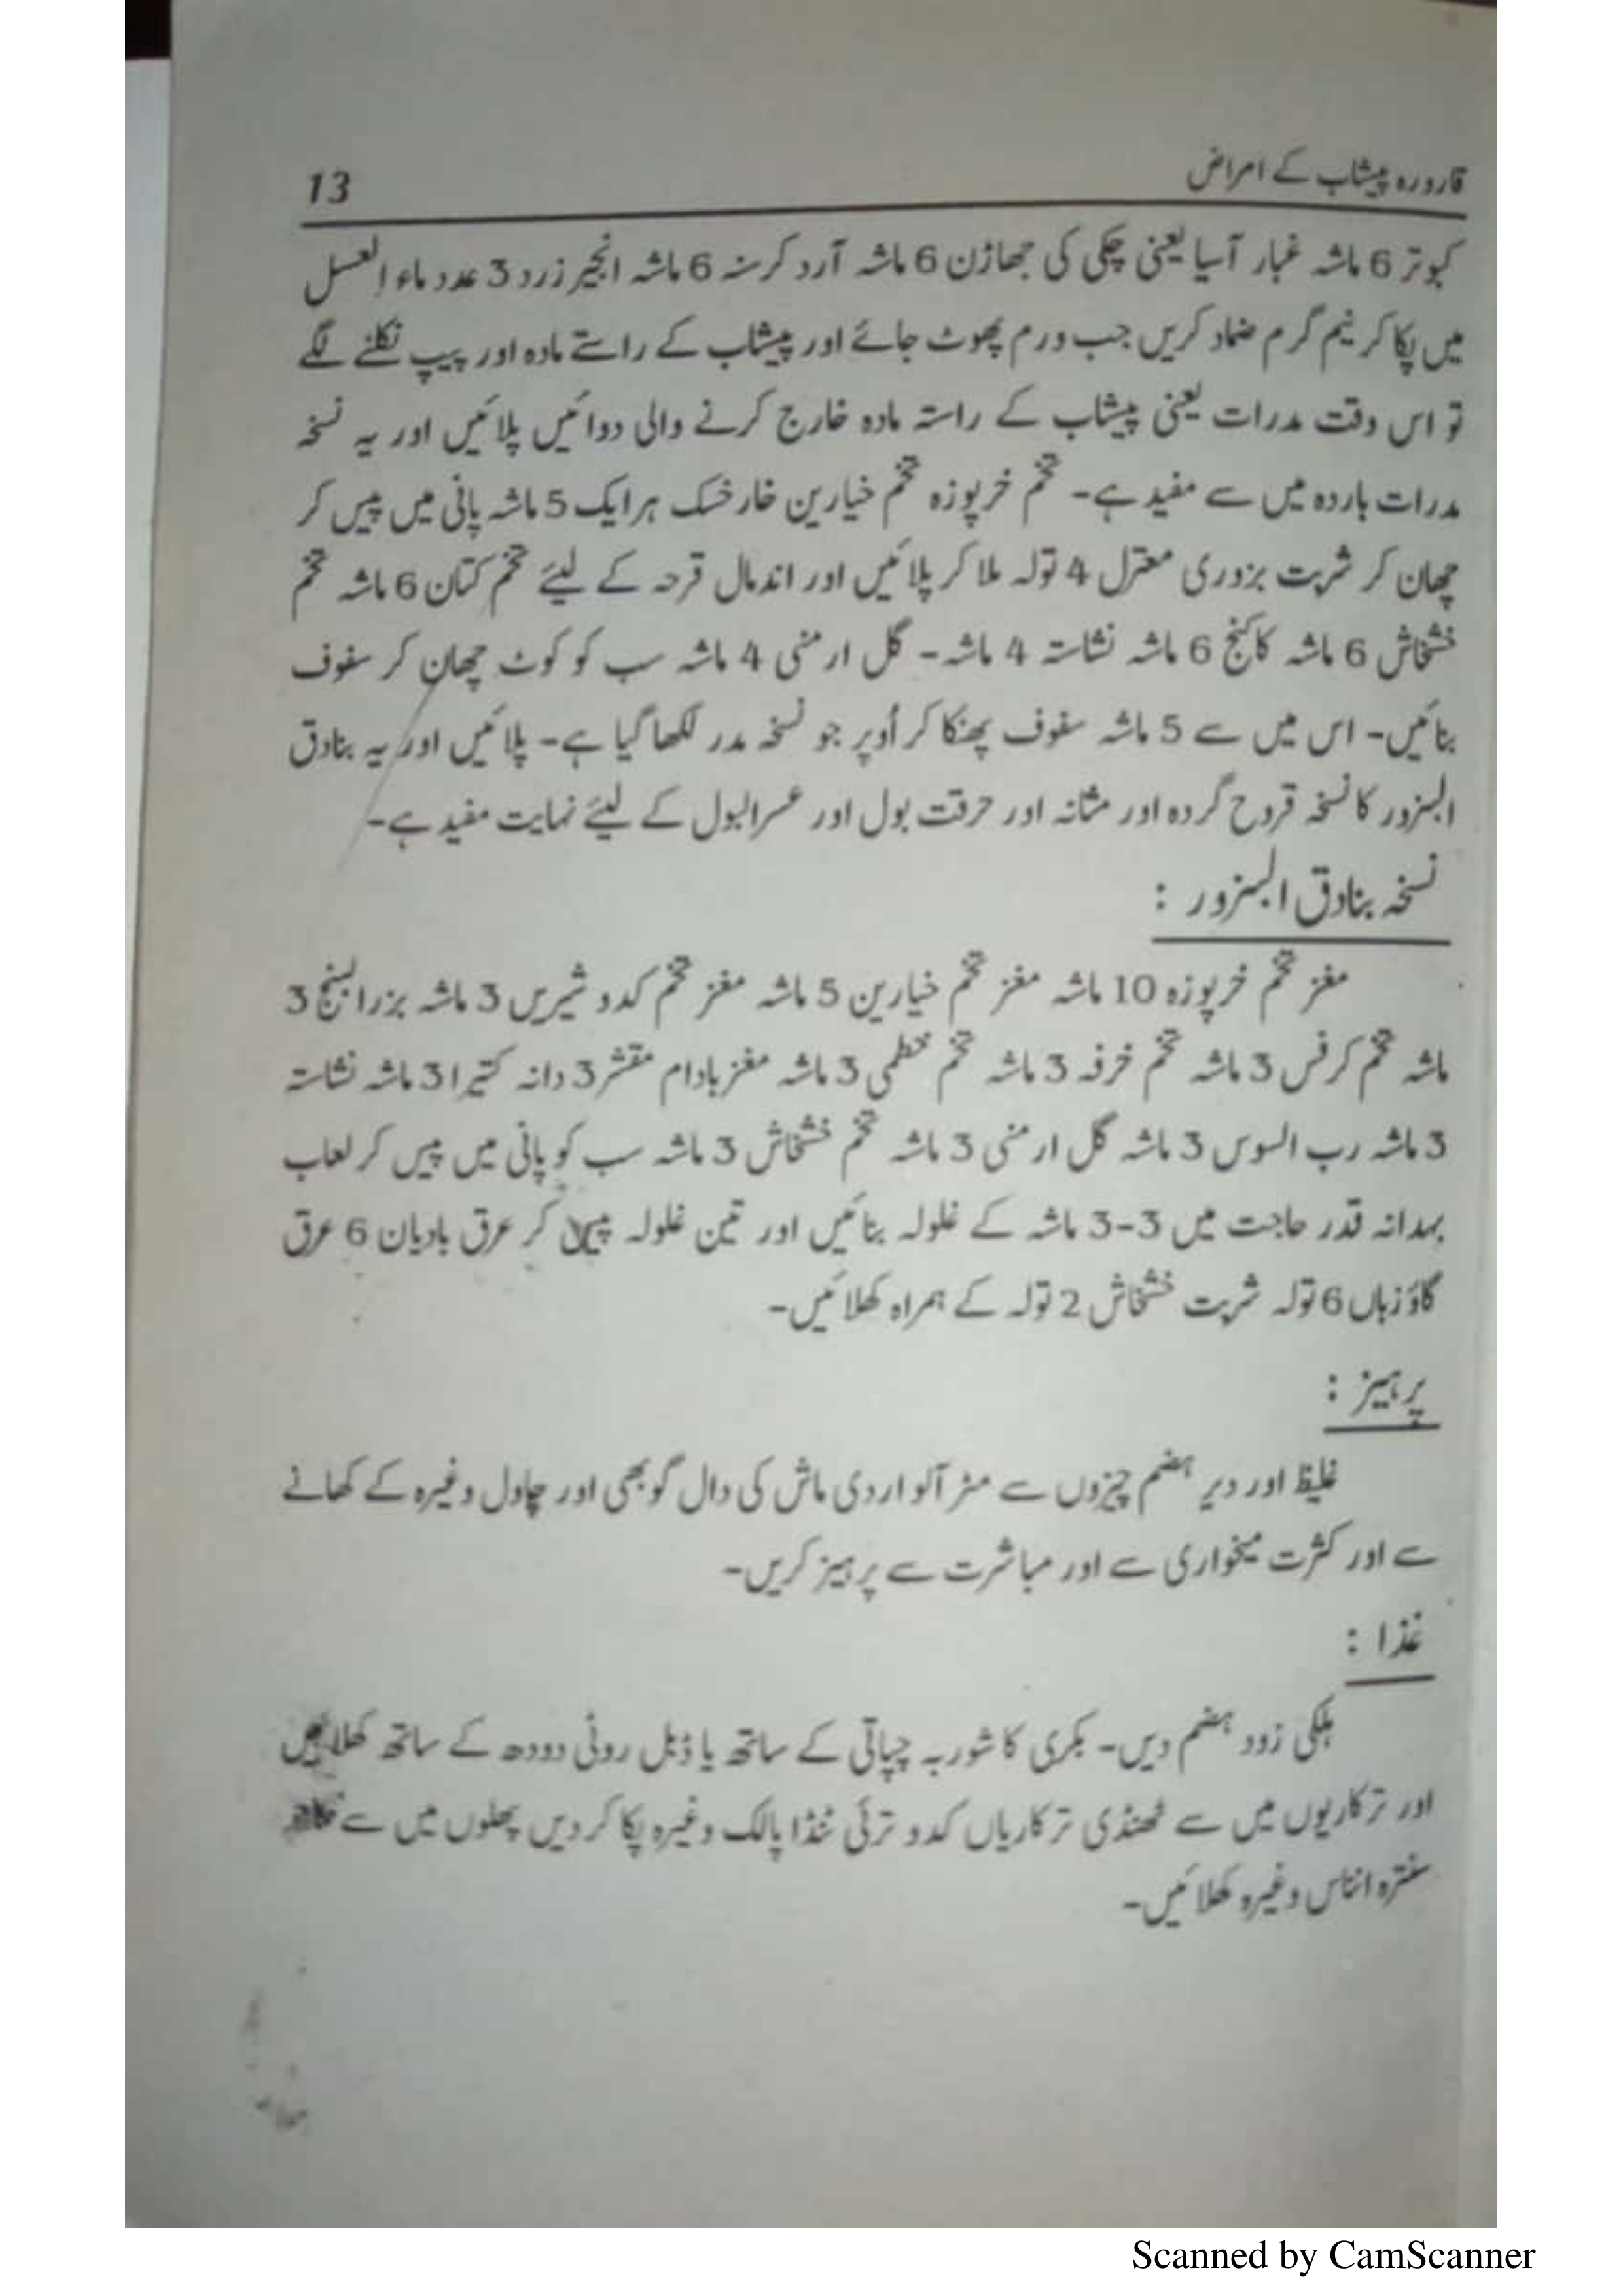 قارورہ پیشاب کے امراض
13
کبوتر 6 ماشہ غبار آسیا یعنی چکی کی جھاڑن 6 ماشہ آرد کرسنہ 6 ماشہ انجیر زرد 3 عدد ماء العسل
میں پکا کر نیم گرم ضماد کریں جب ورم پھوٹ جائے اور پیشاب کے راستے مادہ اور پیپ نکلنے لگے
تو اس وقت مدرات یعنی پیشاب کے راستہ مادہ خارج کرنے والی دوائیں پلائیں اور یہ نسخہ
مدرات باردہ میں سے مفید ہے۔ تخم خرپوزہ تخم خیارین خارخسک ہر ایک 5 ماشہ پانی میں پیس کر
چھان کر شربت بزوری معتزل 4 تولہ ملا کر پلائیں اور اندمال قرحہ کے لیئے تخم کتان 6 ماشہ تخم
خشخاش 6 ماشہ کاکنج 6 ماشہ نشاستہ 4 ماشہ۔ گل ارمنی 4 ماشہ سب کو کوٹ چھان کر سفوف
بنائیں۔ اس میں سے 5 ماشہ سفوف پھنکا کر اُوپر جو نسخہ مدر لکھا گیا ہے۔ پلائیں اور یہ بنادق
البزور کا نسخہ قروح گردہ اور مثانہ اور حرقت بول اور عسرالبول کے لیئے نہایت مفید ہے۔
نسخہ بنادق البزور :
مغز تخم خرپوزہ 10 ماشہ مغز تخم خیارین 5 ماشہ مغز تخم کدو شیریں 3 ماشہ بزرالبنج 3
ماشہ تخم کرفس 3 ماشہ تخم خرفہ 3 ماشہ تخم خطمی 3 ماشہ مغز بادام مقشر 3 دانہ کتیرا 3 ماشہ نشاستہ
3 ماشہ رب السوس 3 ماشہ گل ارمنی 3 ماشہ تخم خشخاش 3 ماشہ سب کو پانی میں پیس کر لعاب
بہدانہ قدر حاجت میں 3-3 ماشہ کے غلولہ بنائیں اور تین غلولہ پیس کر عرق بادیان 6 عرق
گاؤ زباں 6 تولہ شربت خشخاش 2 تولہ کے ہمراہ کھلائیں۔
پرہیز :
غلیظ اور دیر ہضم چیزوں سے مٹر آلو اردی ماش کی دال گوبھی اور چاول وغیرہ کے کھانے
سے اور کثرت میخواری سے اور مباشرت سے پرہیز کریں۔
غذا :
ہلکی زود ہضم دیں۔ بکری کا شوربہ چپاتی کے ساتھ یا ڈبل روٹی دودھ کے ساتھ کھلائیں
اور ترکاریوں میں سے ٹھنڈی ترکاریاں کدو ترئی ٹنڈا پالک وغیرہ پکا کر دیں پھلوں میں سے
سنترہ انناس وغیرہ کھلائیں۔
Scanned by CamScanner